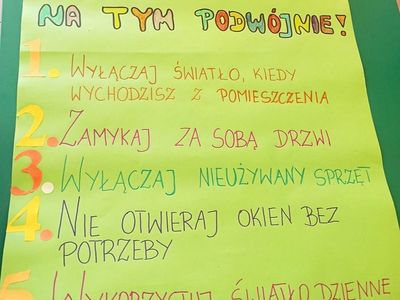 NA TYM PODWÓJNIE!
1. WYŁĄCZAJ ŚWIATŁO, KIEDY
WYCHODZISZ Z POMIESZCZENIA
2. ZAMYKAJ ZA SOBĄ DRZWI
3. WYŁĄCZAJ NIEUŻYWANY SPRZĘT
4. NIE OTWIERAJ OKIEN BEZ
POTRZEBY
5. WYKORZYSTUJ ŚWIATŁO DZIENNE